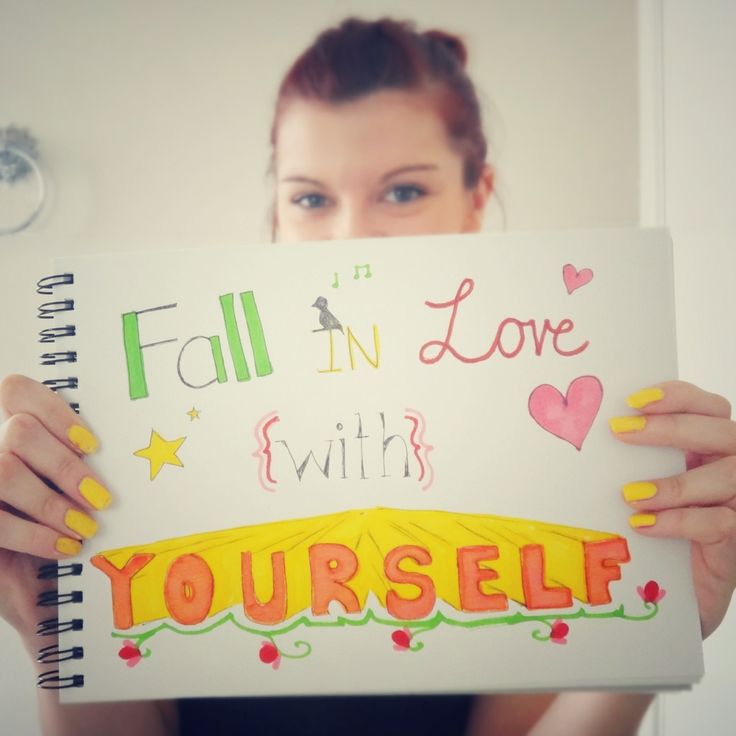 Fall IN Love
{with}
YOURSELF